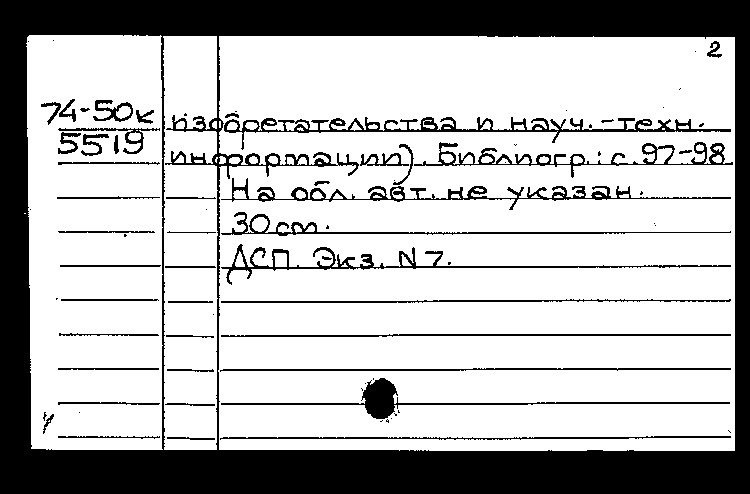 2
74-50к изобретательства и науч.-техн.
5519 информации). Библиогр.: с. 97-98
На обл. авт. не указан.
30 см.
ДСП. Экз. N 7.